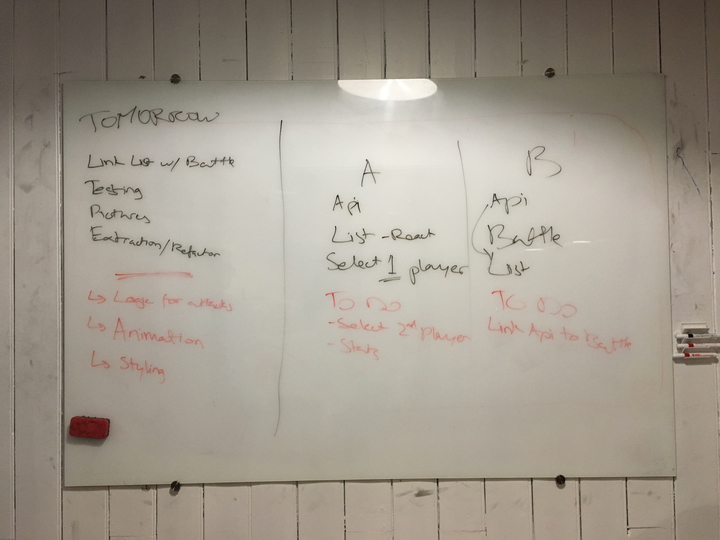 TOMORROW
Link List w/ Battle
Testing
Pictures
Extraction/Refactor
↳ Logic for attacks
↳ Animation
↳ Styling
A
Api
List - React
Select 1 player
TO DO
- Select 2nd player
- Stats
B
Api
Battle
List
TO DO
Link Api to Battle